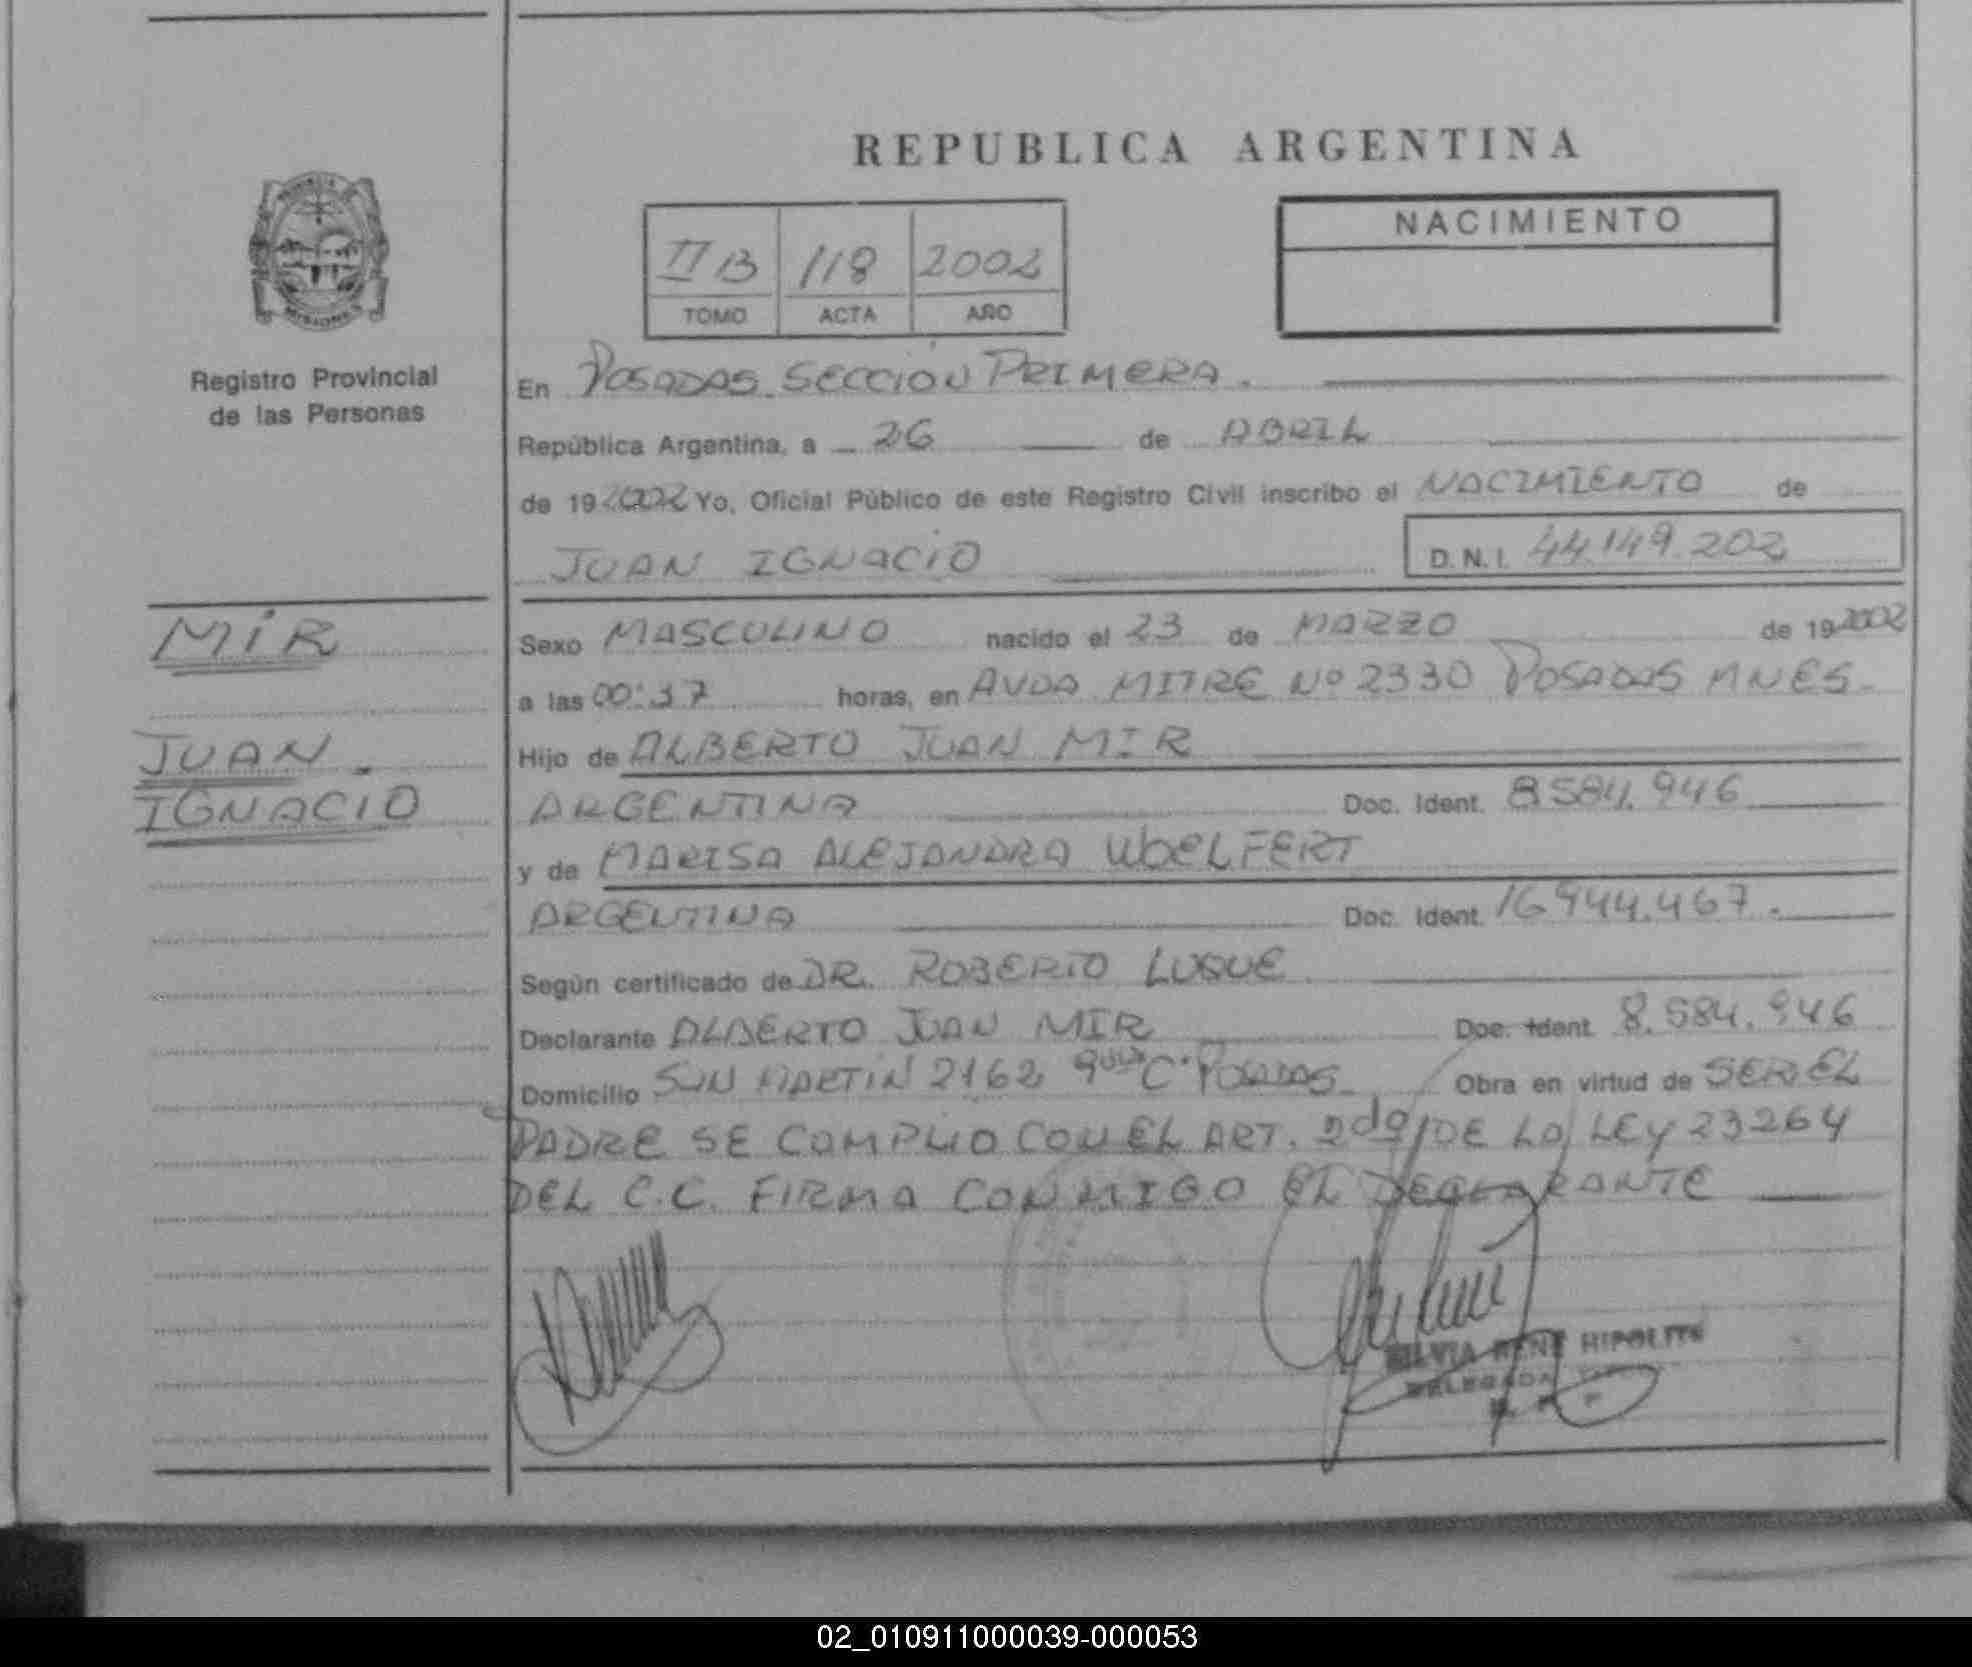 REPUBLICA ARGENTINA
NACIMIENTO
II B 118 2002
TOMO ACTA AÑO
MISIONES
Registro Provincial
de las Personas
En POSADAS SECCIÓN PRIMERA.
República Argentina, a 26 de ABRIL
de 19 2002 Yo, Oficial Público de este Registro Civil inscribo el NACIMIENTO de
JUAN IGNACIO D.N.I. 44.149.202
MIR
JUAN
IGNACIO
Sexo MASCULINO nacido el 23 de MARZO de 19 2002
a las 00:37 horas, en AVDA MITRE Nº 2330 POSADAS MNES.
Hijo de ALBERTO JUAN MIR
ARGENTINA Doc. Ident. 8.584.946
y de MARISA ALEJANDRA WOELFERT
ARGENTINA Doc. Ident. 16.944.467.
Según certificado de DR. ROBERTO LUQUE
Declarante ALBERTO JUAN MIR Doc. Ident. 8.584.946
Domicilio SAN MARTIN 2162 POSADAS Obra en virtud de SER EL
PADRE SE COMPLIO CON EL ART. 2do DE LA LEY 23264
DEL C.C. FIRMA CONMIGO EL DECLARANTE
SILVIA RENE HIPOLITE
DELEGADA
02_010911000039-000053